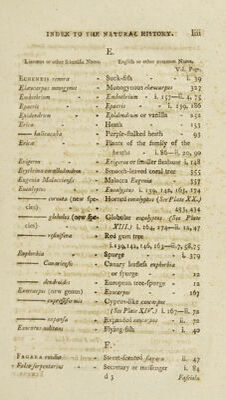 INDEX TO THE NATURAL HISTORY. liii
E.
Linnean or other Scientific Names. English or other common Names.
Vol. Page.
ECHENEIS remora - Suck-fish - - i. 39
Elæocarpus monogynus - Monogynous elæocarpus 327
Embothrium - - Embothrium - i. 157—ii. i, 75
Epacris - - Epacris - - i. 159, 186
Epidendrum - - Epidendrum or vanilla 252
Erica - - Heath - - 153
—— halicacaba - Purple-stalked heath 95
Erica - - Plants of the family of the
heaths - i. 86—ii. 20, 90
Erigeron - - Erigeron or smaller fleabane i. 148
Erythrina corallodendron - Smooth-leaved coral tree 355
Eugenia Malaccensis - Malacca Eugenia 357
Eucalyptus - - Eucalyptus i. 139, 142, 163, 174
—— cornuta (new species) - Horned eucalyptus (See Plate XX.)
453, 434
—— globulus (new species) - Globular eucalyptus (See Plate
XIII.) i. 164, 174—ii. 12, 47
—— resinifera - Red gum tree
i. 139, 142, 146, 163—ii. 7, 58, 75
Euphorbia - - Spurge - - i. 379
—— Canariensis - Canary leafless euphorbia
or spurge - 12
—— dendroides - European tree-spurge - 12
Exocarpus (new genus) - Exocarpus - 167
—— cupressiformis - Cypress-like exocarpus
(See Plate XIV.) i. 167—ii. 72
—— expansa - Expanded exocarpus - ii. 72
Exocœtus volitans - Flying-fish - i. 40
F.
FAGARA - Sweet-scented fagara ii. 47
Falco serpentarius - Secretary or messenger i. 84
d 3 Fasciola